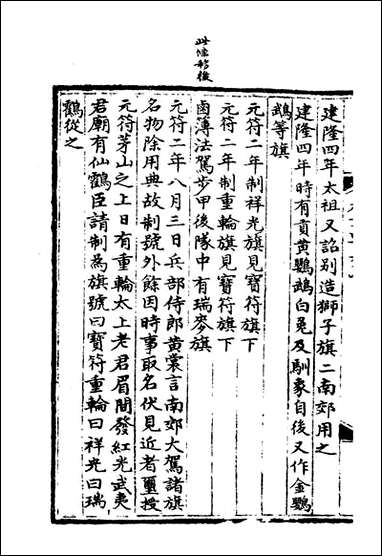 此條移後
建隆四年太祖又詔别造獅子旗二南郊用之
建隆四年時有貢黃鸚鵡白兔及馴象自後又作金鸚
鵡等旗
元符二年制祥光旗見寶符旗下
元符二年制重輪旗見寶符旗下
鹵薄法駕步甲後隊中有瑞麥旗
元符二年八月三日兵部侍郎黃裳言南郊大駕諸旗
名物除用典故制號外餘因時事取名伏見近者璽授
元符茅山之上日有重輪太上老君眉間發紅光武夷
君廟有仙鶴臣請制為旗號曰寶符重輪曰祥光曰瑞
鶴從之